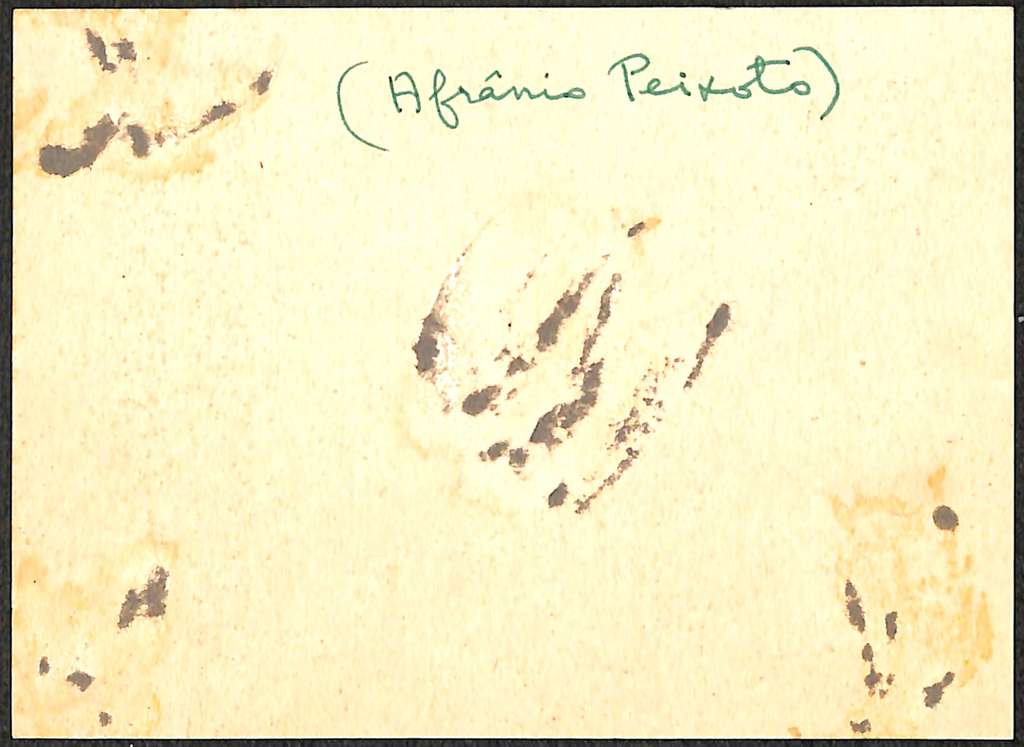 (Afrânio Peixoto)